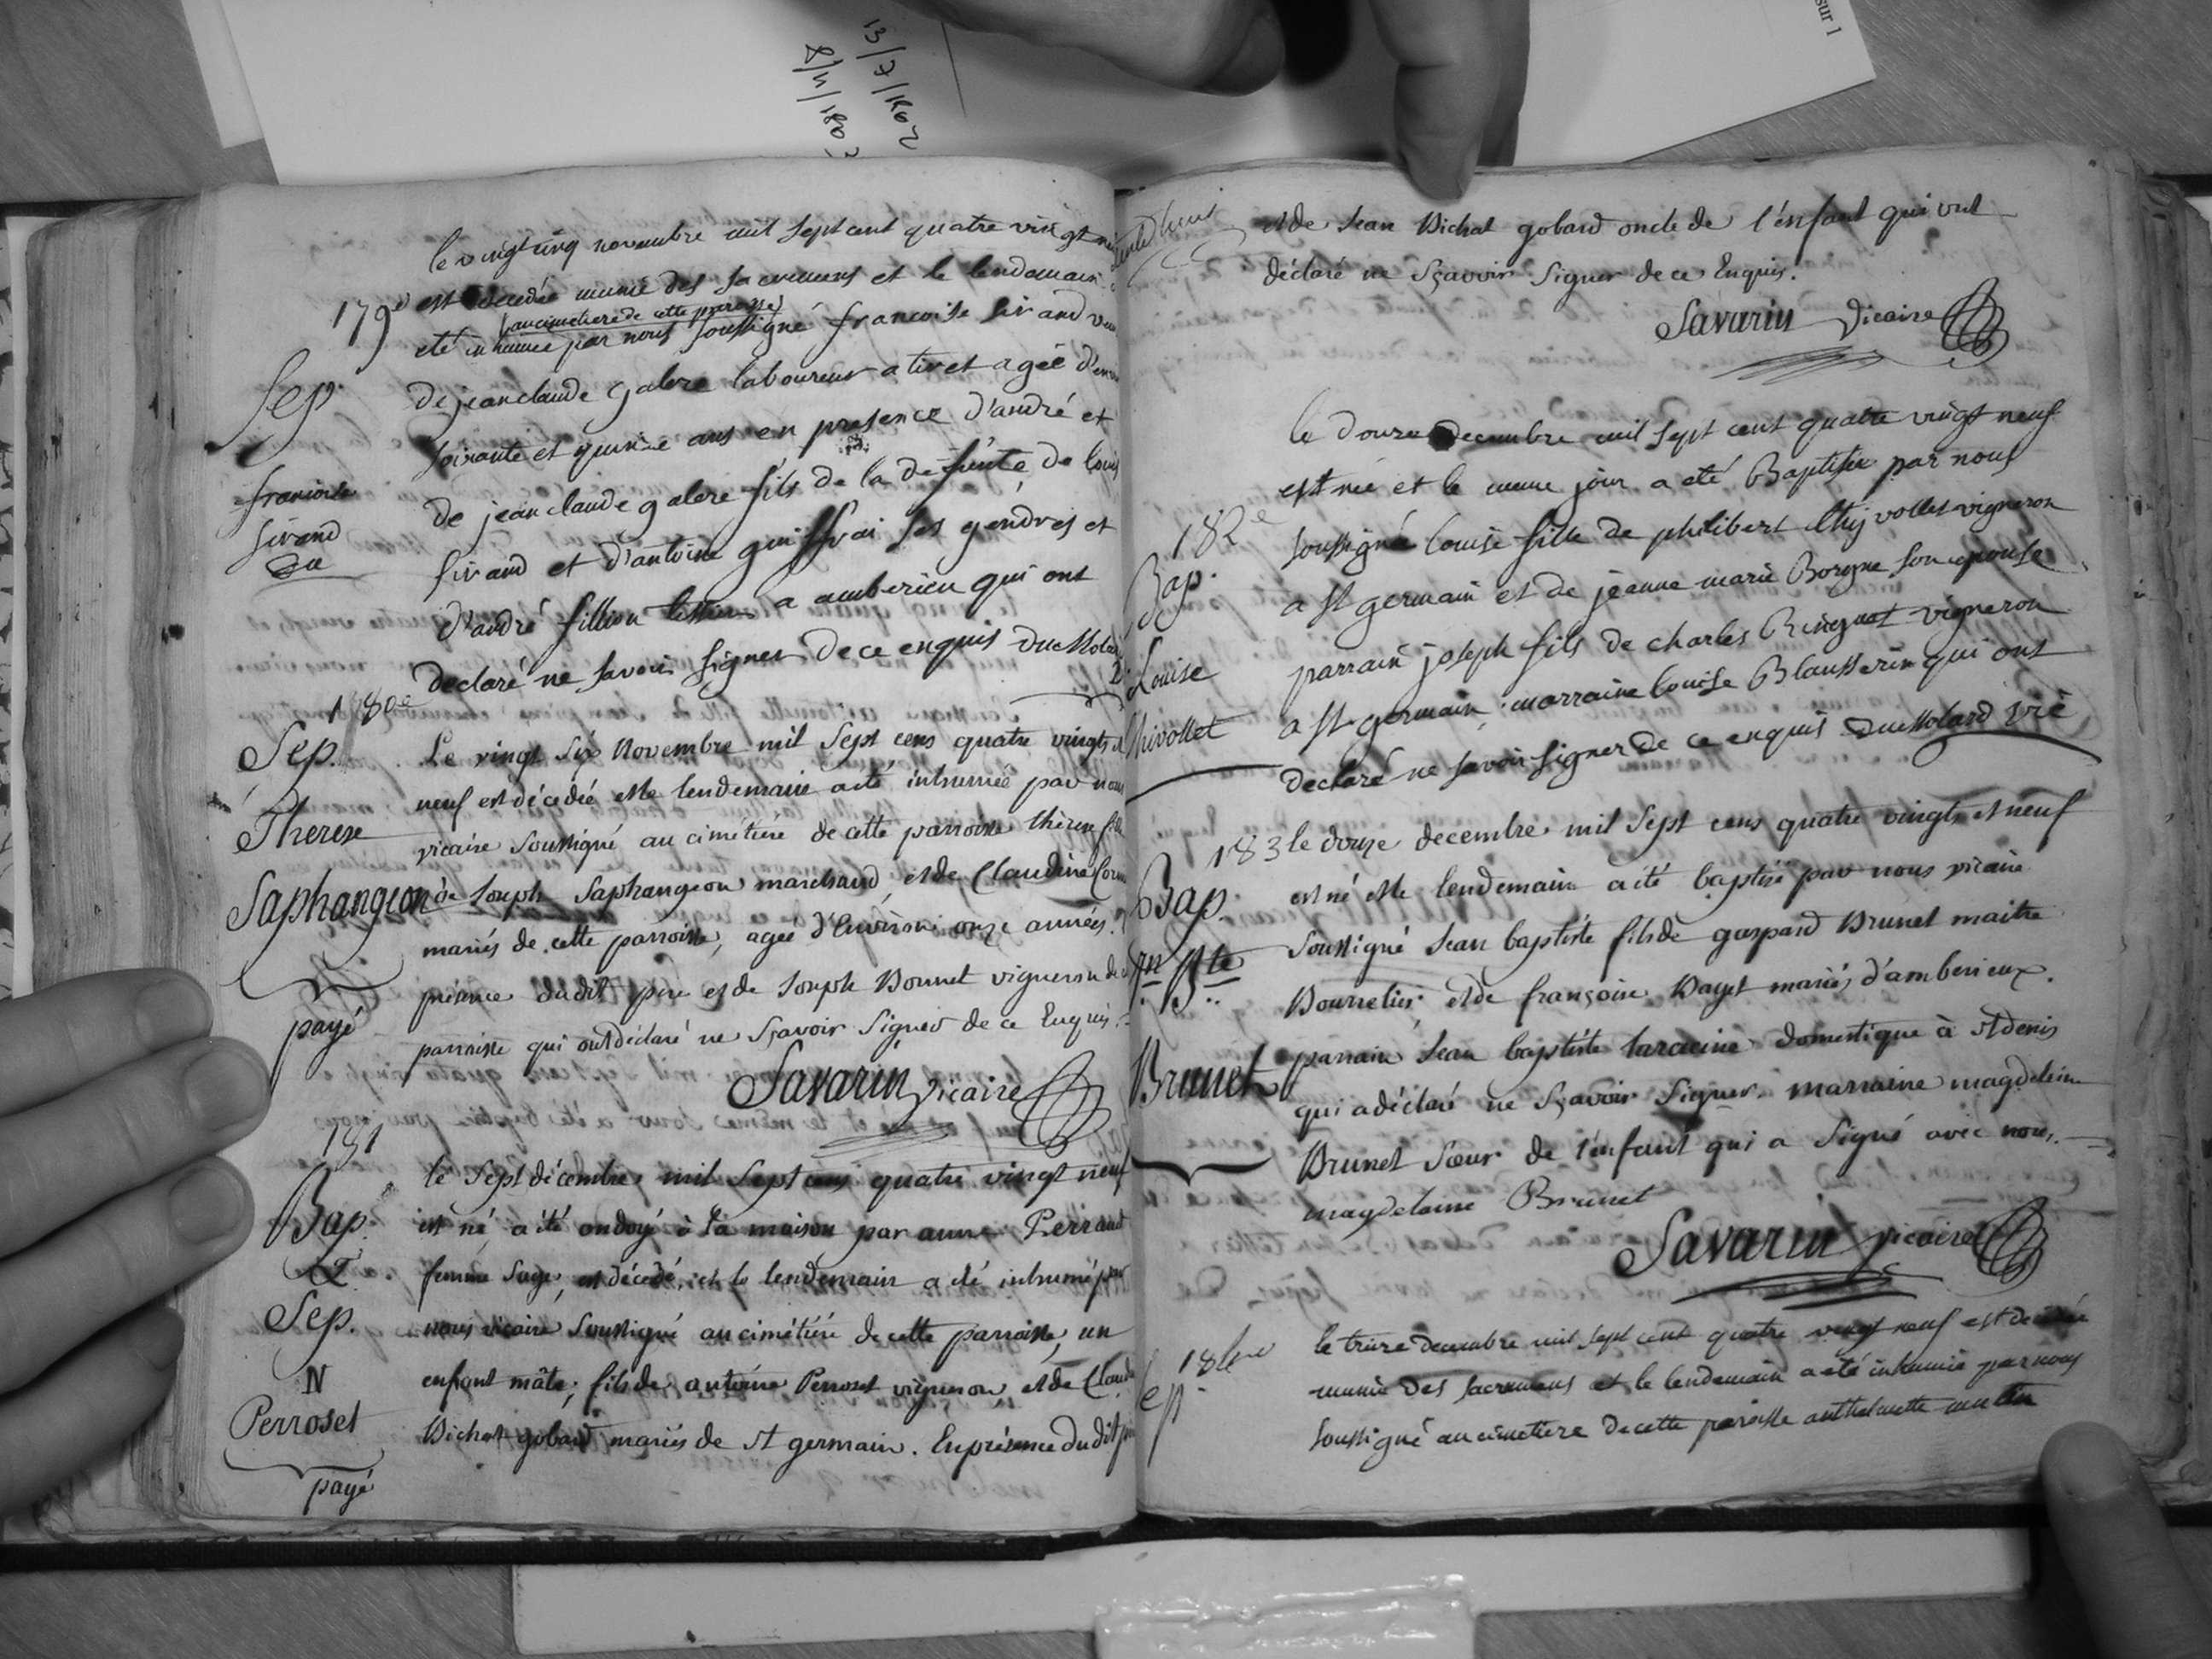 sur 1
13/7/1802
8/4/1803
le vingt cinq novembre mil sept cent quatre vingt
179e
est decedée munie des sacremens et le lendemain a
au cimetiere de cette paroisse
eté inhumée par nous soussigné francoise sirand
Sep.
de jean claude galere laboureur a tiret agée d'environ
soixante et quinze ans en presence d'andré et
francoise
sirand
de jean claude galere fils de la defunte de louis
sirand et d'antoine ses gendres et
d'andré fillion a amberieu qui ont
declaré ne savoir signer de ce enquis
180e
Sep.
Therese
Saphangeon
payé
Le vingt six Novembre mil sept cens quatre vingts et
neuf est décédée et le lendemain a été inhumée par nous
vicaire soussigné au cimétiére de cette parroisse thérese fille
de Joseph Saphangeon marchand, et de Claudine
mariés de cette parroisse, agée d'Environ onze années.
présence dudit pere et de Joseph Bonnet vigneron de
parroisse qui ont déclaré ne Sçavoir Signer de ce Enquis
Savarin vicaire
181
Bap.
&
Sep.
N
Perroset
payé
le Sept décembre mil Sept cens quatre vingt neuf
est né, a été ondoyé à la maison par anne Perraud
femme Sage, est décédé, et le lendemain a été inhumé par
nous vicaire Soussigné au cimétiére de cette parroisse, un
enfant mâle, fils de antoine Perroset vigneron et de Claud
Bichat gobard mariés de St germain. En présence dudit
et de Jean Bichat gobard oncle de l'enfant qui ont
déclaré ne Sçavoir Signer de ce Enquis.
Savarin Vicaire
182e
Bap.
Louise
Chivollet
le douze decembre mil sept cent quatre vingt neuf
est née et le meme jour a eté Baptisée par nous
soussigné louise fille de philibert vigneron
a st germain et de jeanne marie Borgne son epouse
parrain joseph fils de charles vigneron
a st germain, marraine louise qui ont
declaré ne savoir signer de ce enquis Dumollard vic
183
Bap.
Jn Bte
Brunet
le douze decembre mil Sept cens quatre vingts et neuf
est né et le lendemain a été baptisé par nous vicaire
Soussigné Jean baptiste fils de gaspard Brunet maitre
Bourrelier, et de françoise mariés d'amberieux.
parrain Jean baptiste domestique à St denis
qui a déclaré ne Sçavoir Signer. marraine magdeleine
Brunet Sœur de l'enfant qui a Signé avec nous.
magdelaine Brunet
Savarin vicaire
184e
Sep.
le treize decembre mil sept cent quatre vingt neuf est decedée
munie des sacremens et le lendemain a eté inhumée par nous
soussigné au cimetiere de cette paroisse anthelmette